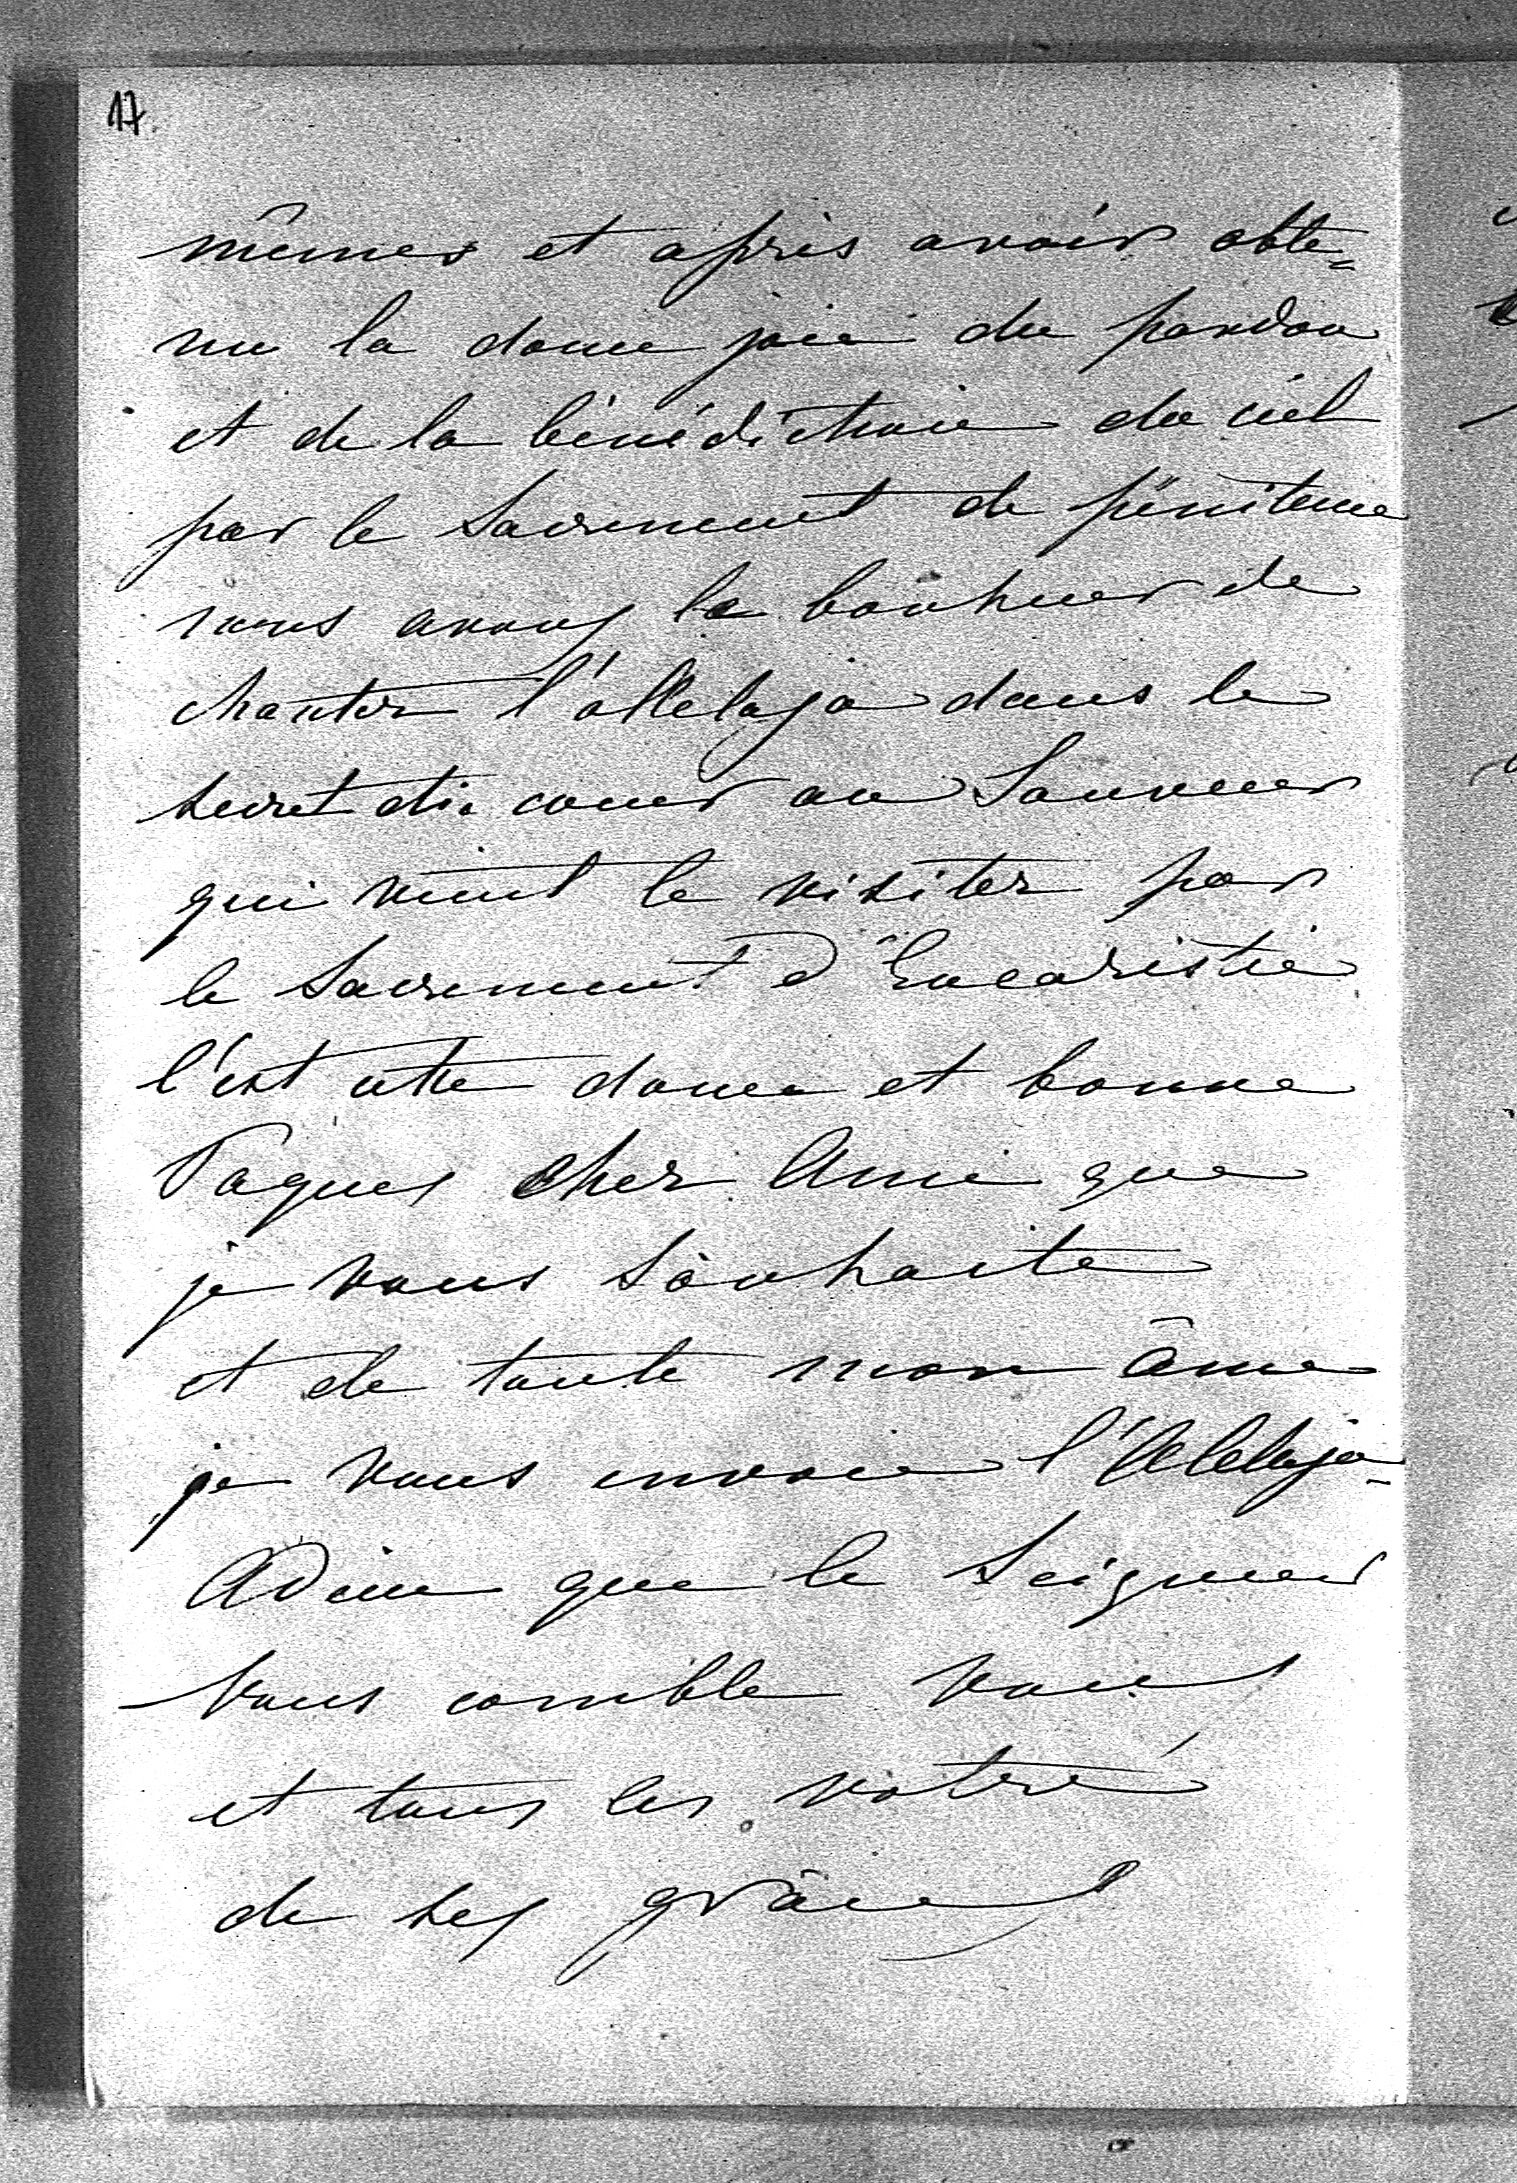 17.
mêmes et après avoir obte=
nu la douce joie du pardon
et de la bénédiction du ciel
par le Sacrement de pénitence
nous avons le bonheur de
chanter l'alleluja dans le
secret du coeur au Sauveur
qui vient le visiter par
le Sacrement d'Eucaristie
C'est cette douce et bonne
Paques cher Ami que
je vous souhaite
et de toute mon âme
je vous envoie l'Alleluja -
Adieu que le Seigneur
vous comble vous
et tous les votres
de ses grâces